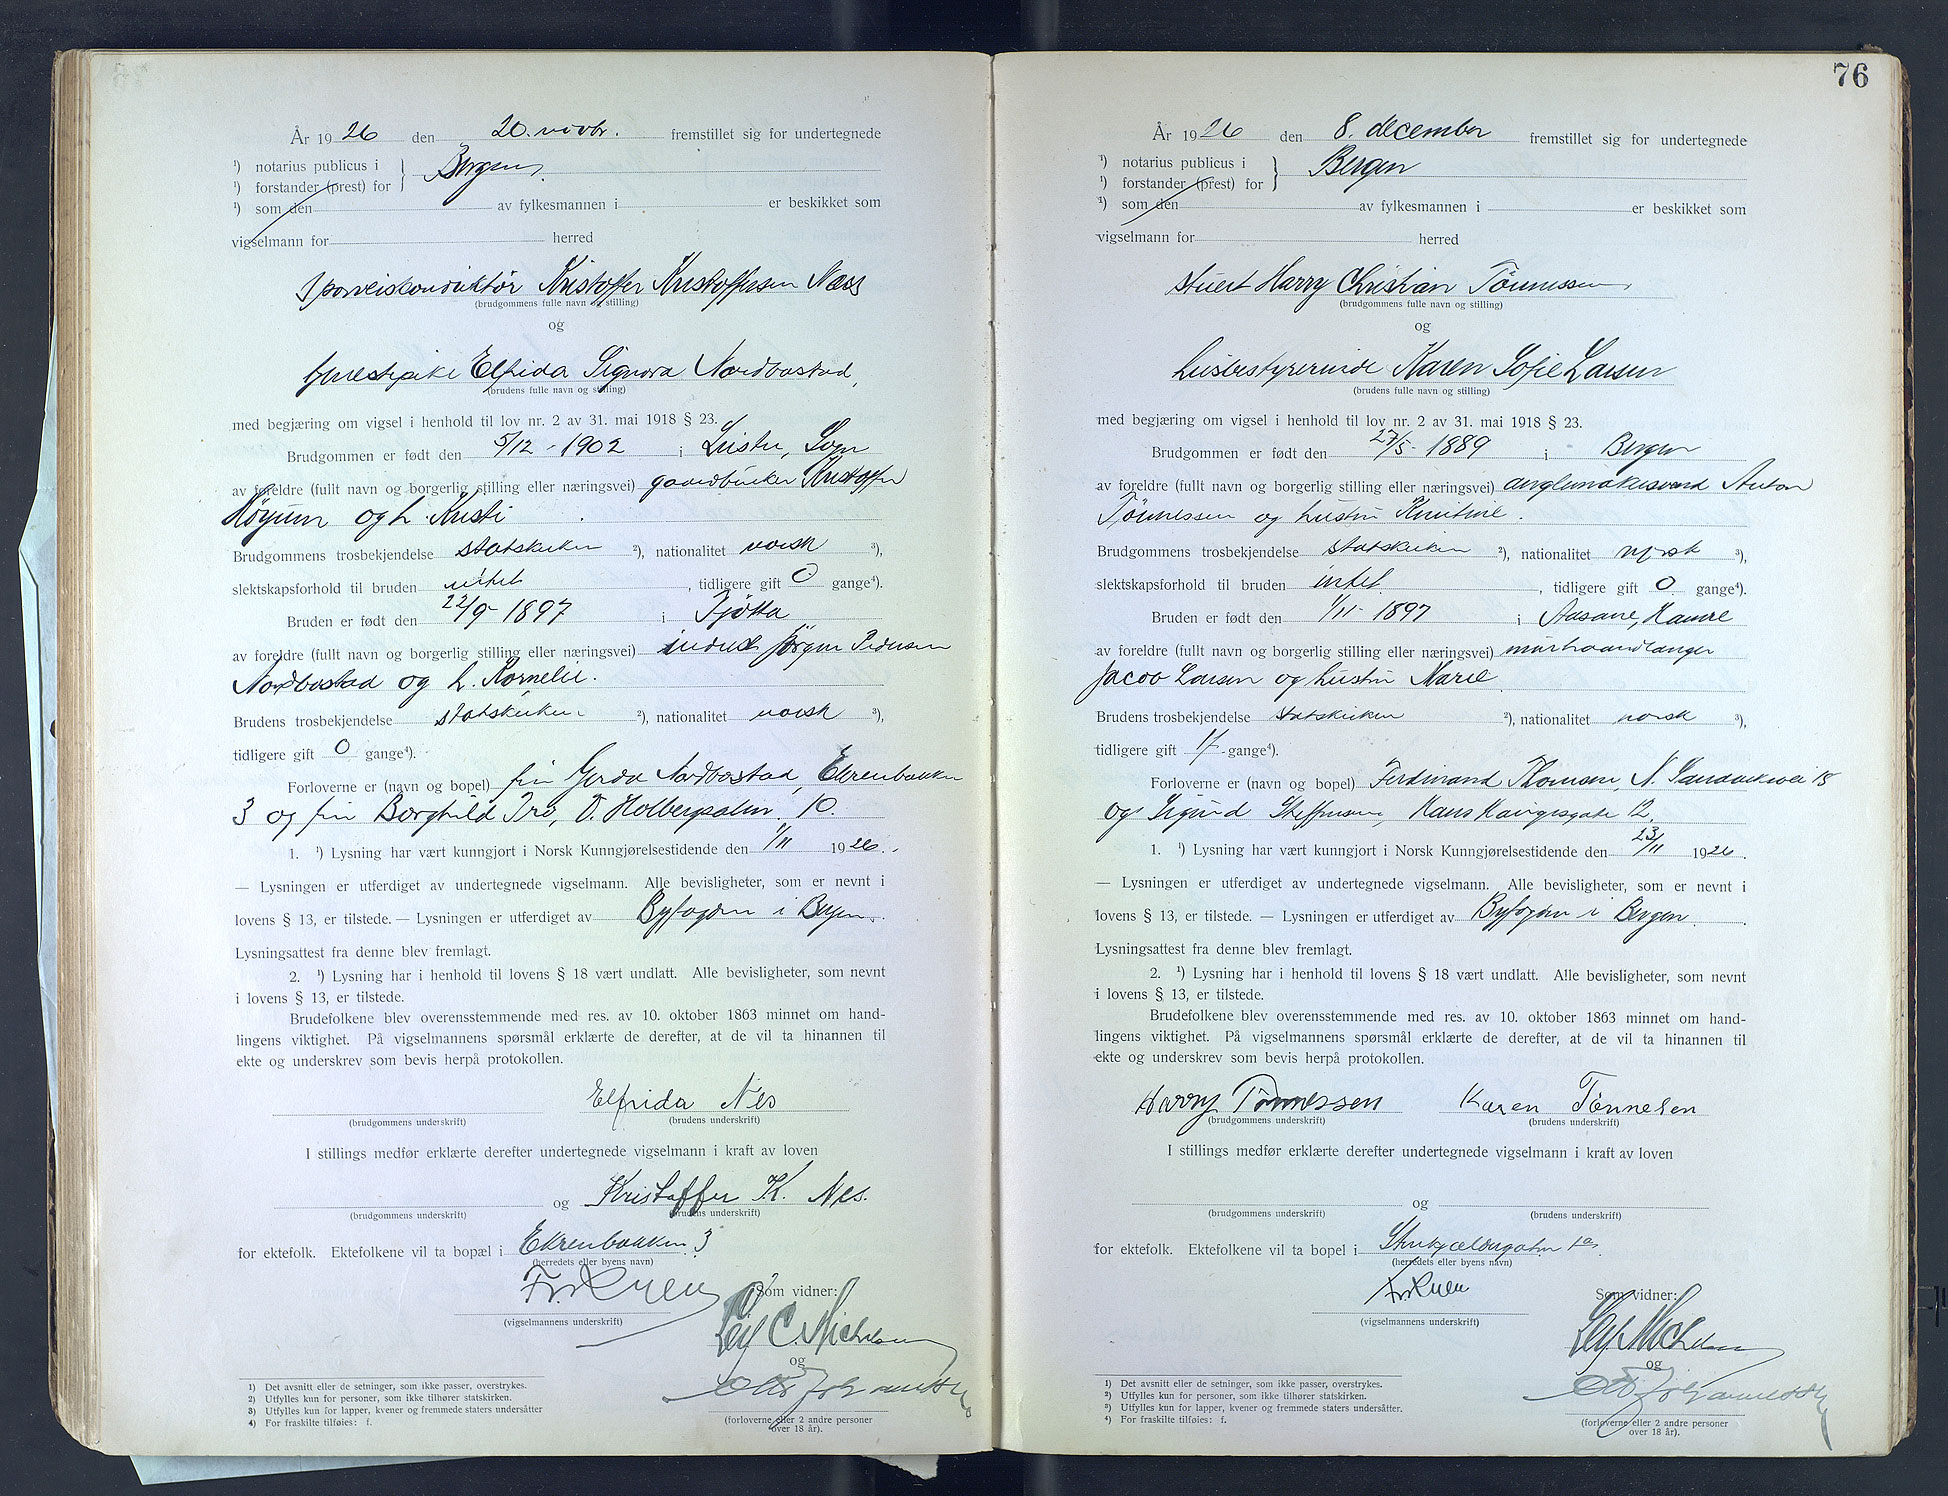 År 1926 den 20. novbr. fremstillet sig for undertegnede
¹) notarius publicus i } Bergen
¹) forstander (prest) for
¹) som den av fylkesmannen i er beskikket som
vigselmann for herred
Sporveiskonduktør Kristoffer Kristoffersen Næss
(brudgommens fulle navn og stilling)
og
tjenestepike Elfrida Signora Nordbostad,
(brudens fulle navn og stilling)
med begjæring om vigsel i henhold til lov nr. 2 av 31. mai 1918 § 23.
Brudgommen er født den 5/12 - 1902 i Luster, Sogn
av foreldre (fullt navn og borgerlig stilling eller næringsvei) gaardbruker Kristoffer
Høyum og h. Kristi
Brudgommens trosbekjendelse statskirken ²), nationalitet norsk ³),
slektskapsforhold til bruden intet, tidligere gift 0 gange⁴).
Bruden er født den 22/9 - 1897 i Tjøtta
av foreldre (fullt navn og borgerlig stilling eller næringsvei) inderst Jørgen Pedersen
Nordbostad og h. Kornelie.
Brudens trosbekjendelse statskirken ²), nationalitet norsk ³),
tidligere gift 0 gange⁴).
Forloverne er (navn og bopel) frk Gerda Nordbostad, Ekrenbakken
3 og frk Borghild Tro, D. Holbergsalm. 10.
1. ¹) Lysning har vært kunngjort i Norsk Kunngjørelsestidende den 1/11 1926.
— Lysningen er utferdiget av undertegnede vigselmann. Alle bevisligheter, som er nevnt i
lovens § 13, er tilstede. — Lysningen er utferdiget av Byfogden i Bergen.
Lysningsattest fra denne blev fremlagt.
2. ¹) Lysning har i henhold til lovens § 18 vært undlatt. Alle bevisligheter, som nevnt
i lovens § 13, er tilstede.
Brudefolkene blev overensstemmende med res. av 10. oktober 1863 minnet om hand-
lingens viktighet. På vigselmannens spørsmål erklærte de derefter, at de vil ta hinannen til
ekte og underskrev som bevis herpå protokollen.
Elfrida Nes
(brudgommens underskrift) (brudens underskrift)
I stillings medfør erklærte derefter undertegnede vigselmann i kraft av loven
og Kristoffer K. Nes.
(brudgommens underskrift) (brudens underskrift)
for ektefolk. Ektefolkene vil ta bopæl i Ekrenbakken 3
(herredets eller byens navn)
Som vidner:
(vigselmannens underskrift)
Leif C. Michelsen
og
Otto Johannessen
(forloverne eller 2 andre personer
over 18 år).
1) Det avsnitt eller de setninger, som ikke passer, overstrykes.
2) Utfylles kun for personer, som ikke tilhører statskirken.
3) Utfylles kun for lapper, kvener og fremmede staters undersåtter
4) For fraskilte tilføies: f.
76
År 1926 den 8. december fremstillet sig for undertegnede
¹) notarius publicus i } Bergen
¹) forstander (prest) for
¹) som den av fylkesmannen i er beskikket som
vigselmann for herred
stuert Harry Christian Tönnessen
(brudgommens fulle navn og stilling)
og
husbestyrerinde Karen Sofie Larsen
(brudens fulle navn og stilling)
med begjæring om vigsel i henhold til lov nr. 2 av 31. mai 1918 § 23.
Brudgommen er født den 27/5 - 1889 i Bergen
av foreldre (fullt navn og borgerlig stilling eller næringsvei) Anton
Tönnessen og hustru
Brudgommens trosbekjendelse statskirken ²), nationalitet norsk ³),
slektskapsforhold til bruden intet, tidligere gift 0 gange⁴).
Bruden er født den 1/11 - 1897 i Aasane, Hamre
av foreldre (fullt navn og borgerlig stilling eller næringsvei) murhaandlanger
Jacob Larsen og hustru Marie
Brudens trosbekjendelse statskirken ²), nationalitet norsk ³),
tidligere gift 1 f gange⁴).
Forloverne er (navn og bopel) Ferdinand Thomsen, N. Sandviksvei 18
og Sigurd Steffensen, Hans Haugesgate 12.
1. ¹) Lysning har vært kunngjort i Norsk Kunngjørelsestidende den 23/11 1926.
— Lysningen er utferdiget av undertegnede vigselmann. Alle bevisligheter, som er nevnt i
lovens § 13, er tilstede. — Lysningen er utferdiget av Byfogden i Bergen.
Lysningsattest fra denne blev fremlagt.
2. ¹) Lysning har i henhold til lovens § 18 vært undlatt. Alle bevisligheter, som nevnt
i lovens § 13, er tilstede.
Brudefolkene blev overensstemmende med res. av 10. oktober 1863 minnet om hand-
lingens viktighet. På vigselmannens spørsmål erklærte de derefter, at de vil ta hinannen til
ekte og underskrev som bevis herpå protokollen.
Harry Tönnessen Karen Tönnesen
(brudgommens underskrift) (brudens underskrift)
I stillings medfør erklærte derefter undertegnede vigselmann i kraft av loven
og
(brudgommens underskrift) (brudens underskrift)
for ektefolk. Ektefolkene vil ta bopel i
(herredets eller byens navn)
Som vidner:
(vigselmannens underskrift)
Leif Michelsen
og
Otto Johannessen
(forloverne eller 2 andre personer
over 18 år).
1) Det avsnitt eller de setninger, som ikke passer, overstrykes.
2) Utfylles kun for personer, som ikke tilhører statskirken.
3) Utfylles kun for lapper, kvener og fremmede staters undersåtter.
4) For fraskilte tilføies: f.